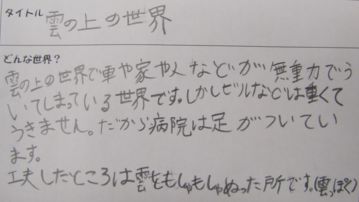 タイトル
雲の上の世界
どんな世界？
雲の上の世界で車や家や人などが無重力でう
いてしまっている世界です。しかしビルなどは重くて
うきません。だから病院は足がついてい
ます。
工夫したところは雲をもしゃもしゃぬった所です。(雲っぽく)